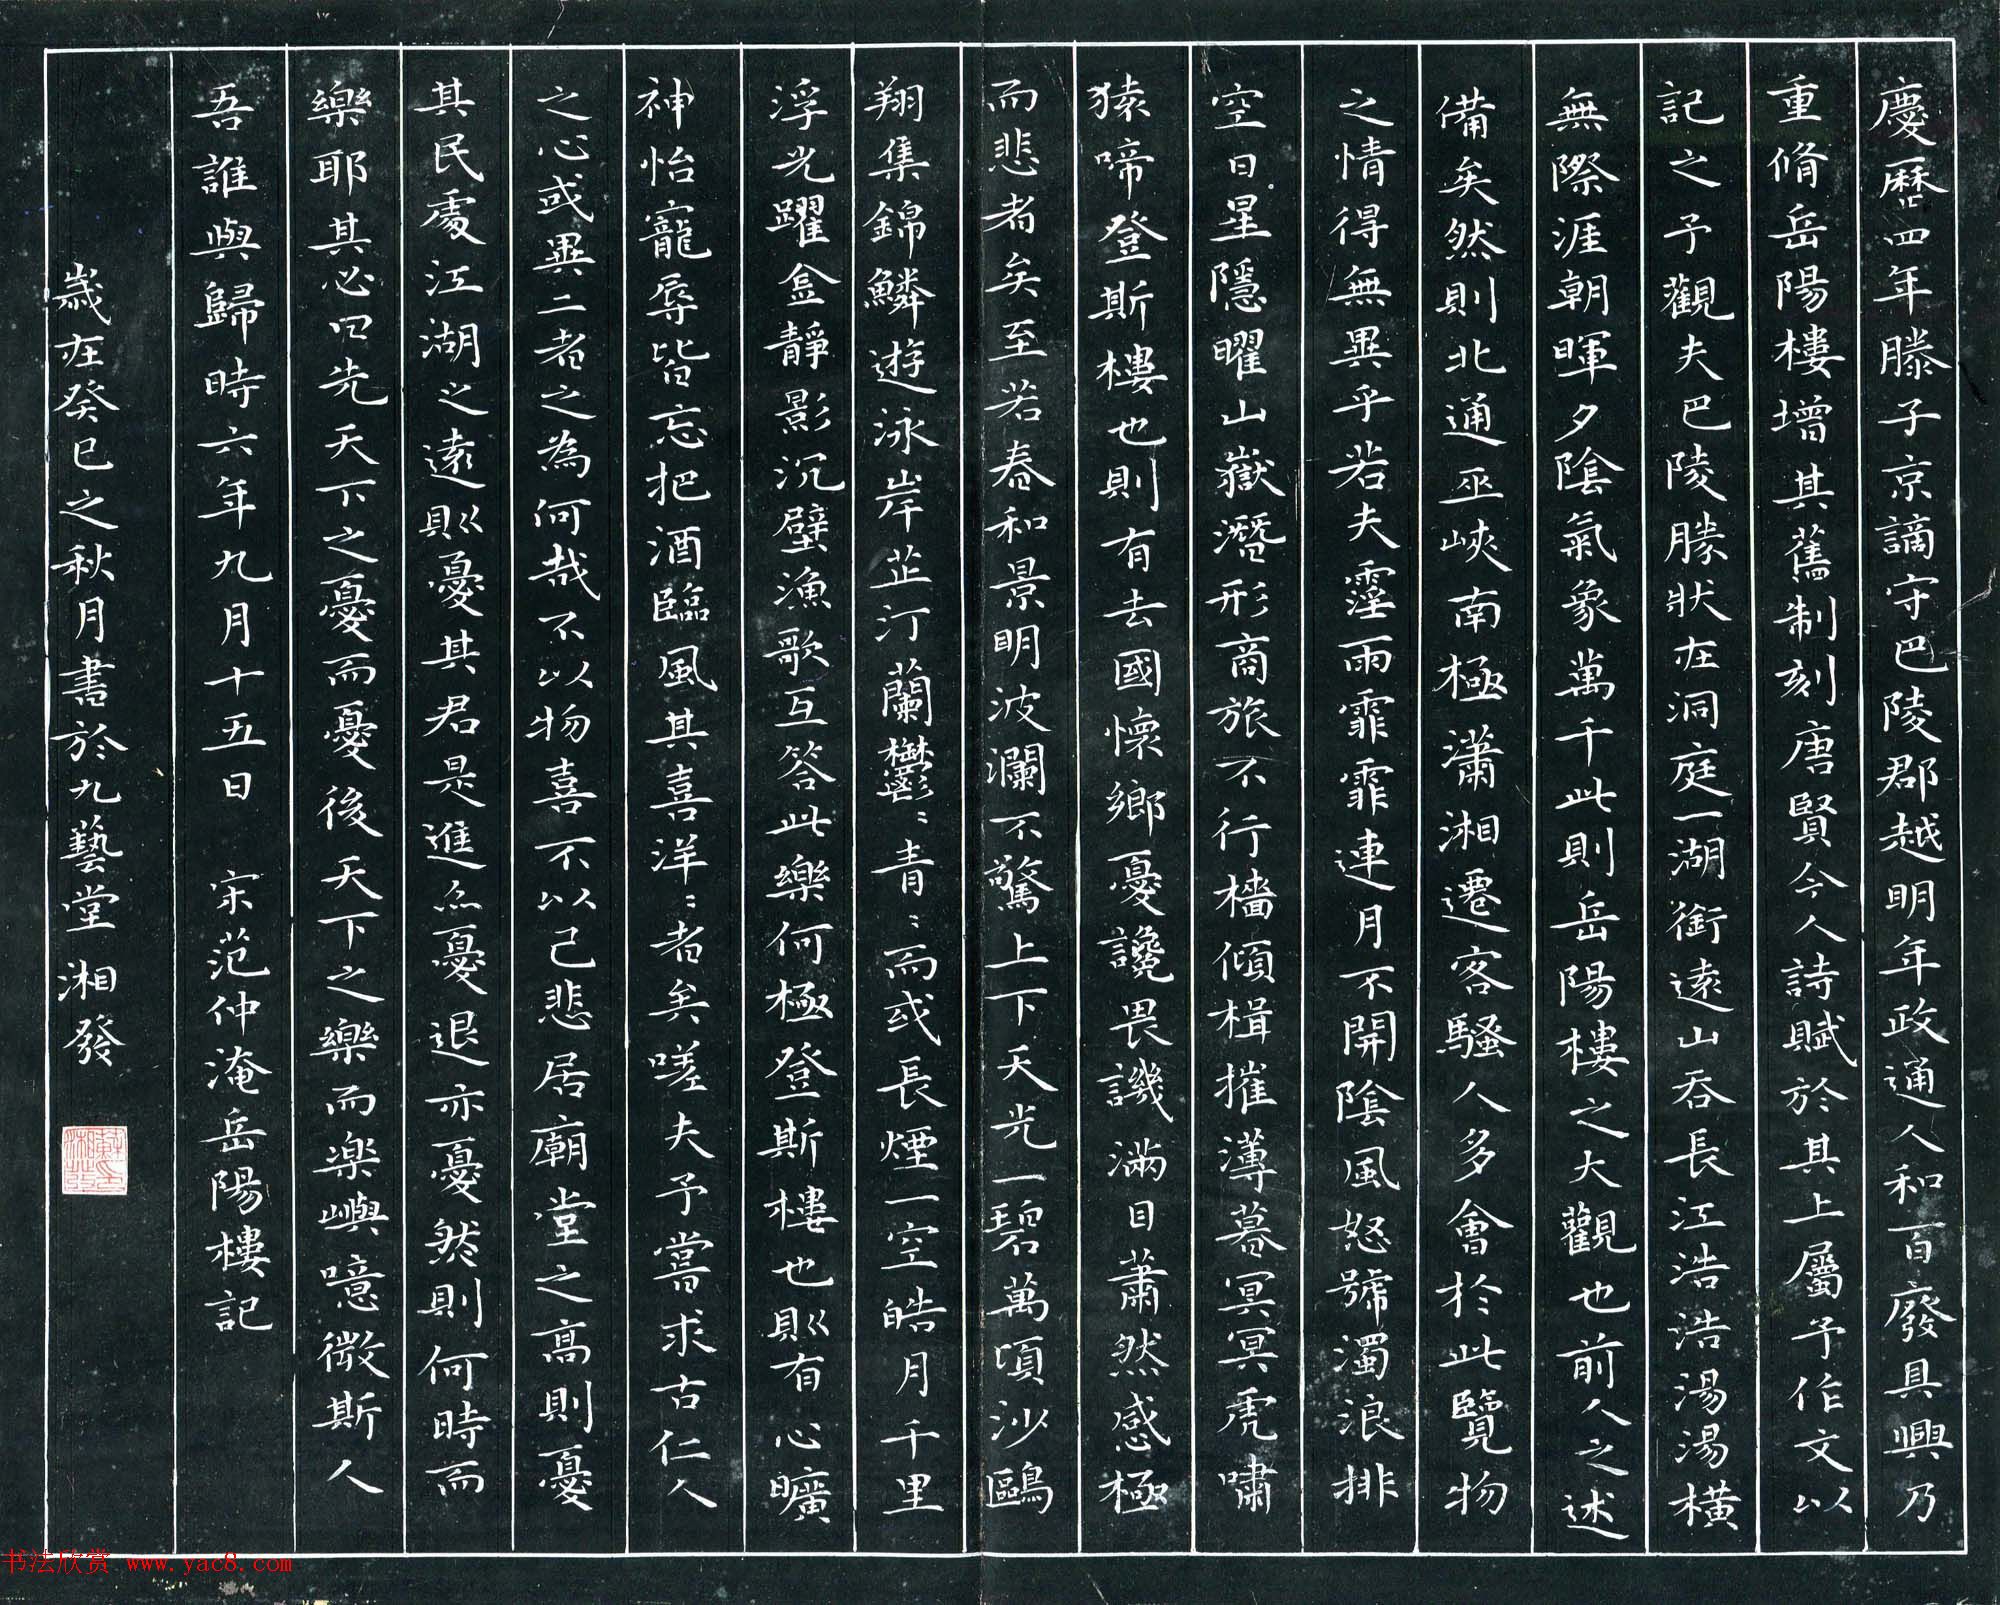 慶曆四年滕子京謫守巴陵郡越明年政通人和百廢具興乃
重脩岳陽樓增其舊制刻唐賢今人詩賦於其上屬予作文以
記之予觀夫巴陵勝狀在洞庭一湖銜遠山吞長江浩浩湯湯橫
無際涯朝暉夕陰氣象萬千此則岳陽樓之大觀也前人之述
備矣然則北通巫峽南極瀟湘遷客騷人多會於此覽物
之情得無異乎若夫霪雨霏霏連月不開陰風怒號濁浪排
空日星隱曜山嶽潛形商旅不行檣傾楫摧薄暮冥冥虎嘯
猿啼登斯樓也則有去國懷鄉憂讒畏譏滿目蕭然感極
而悲者矣至若春和景明波瀾不驚上下天光一碧萬頃沙鷗
翔集錦鱗遊泳岸芷汀蘭鬱〻青〻而或長煙一空皓月千里
浮光躍金靜影沉璧漁歌互答此樂何極登斯樓也則有心曠
神怡寵辱皆忘把酒臨風其喜洋〻者矣嗟夫予嘗求古仁人
之心或異二者之為何哉不以物喜不以己悲居廟堂之高則憂
其民處江湖之遠則憂其君是進亦憂退亦憂然則何時而
樂耶其必曰先天下之憂而憂後天下之樂而樂歟噫微斯人
吾誰與歸時六年九月十五日 宋范仲淹岳陽樓記
歲在癸巳之秋月書於九藝堂湘發
书法欣赏 www.yac8.com